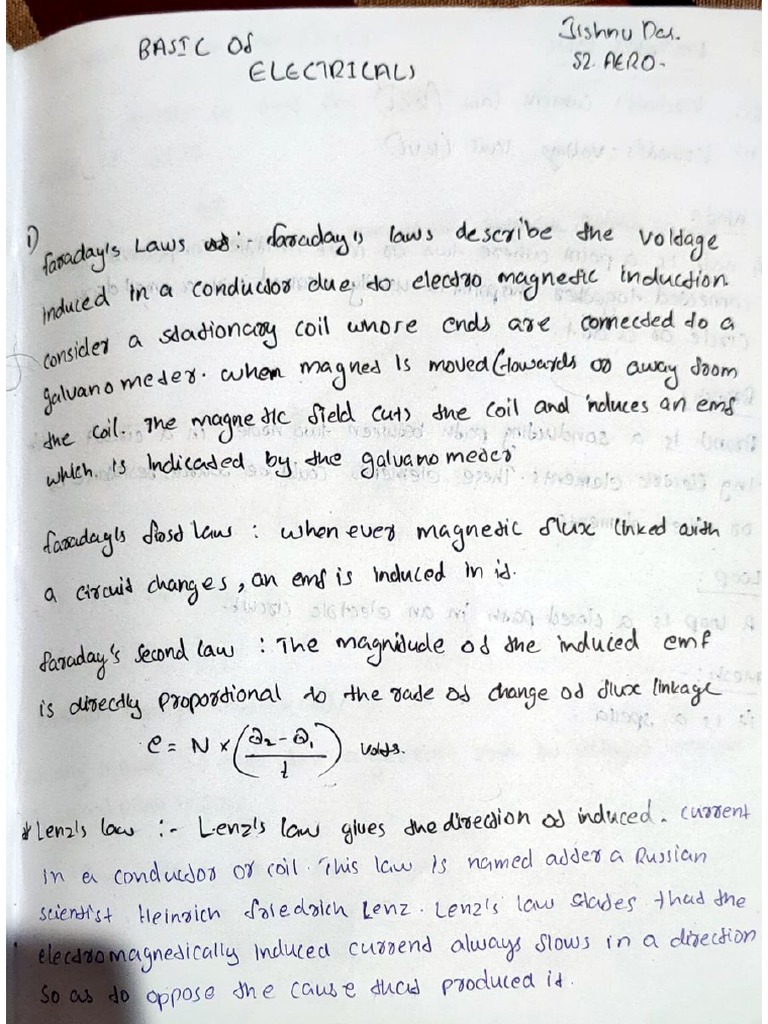 BASIC OF
ELECTRICALS
Jishnu Das.
S2. AERO-
1) faraday's Laws :- faraday's laws describe the voltage
induced in a conductor due to electro magnetic induction
consider a stationary coil whose ends are connected to a
galvanometer. when magnet is moved (towards or away from
the coil. The magnetic field cuts the coil and induces an emf
which is Indicated by the galvanometer
faraday's first law : when ever magnetic flux linked with
a circuit changes, an emf is induced in it.
faraday's second law : The magnitude of the induced emf
is directly proportional to the rate of change of flux linkage
e = N × (Ø2 - Ø1 / t) volts.
* Lenz's law :- Lenz's law gives the direction of induced. current
in a conductor or coil. This law is named after a Russian
scientist Heinrich friedrich Lenz. Lenz's law states that the
electromagnetically induced current always flows in a direction
so as to oppose the cause that produced it.